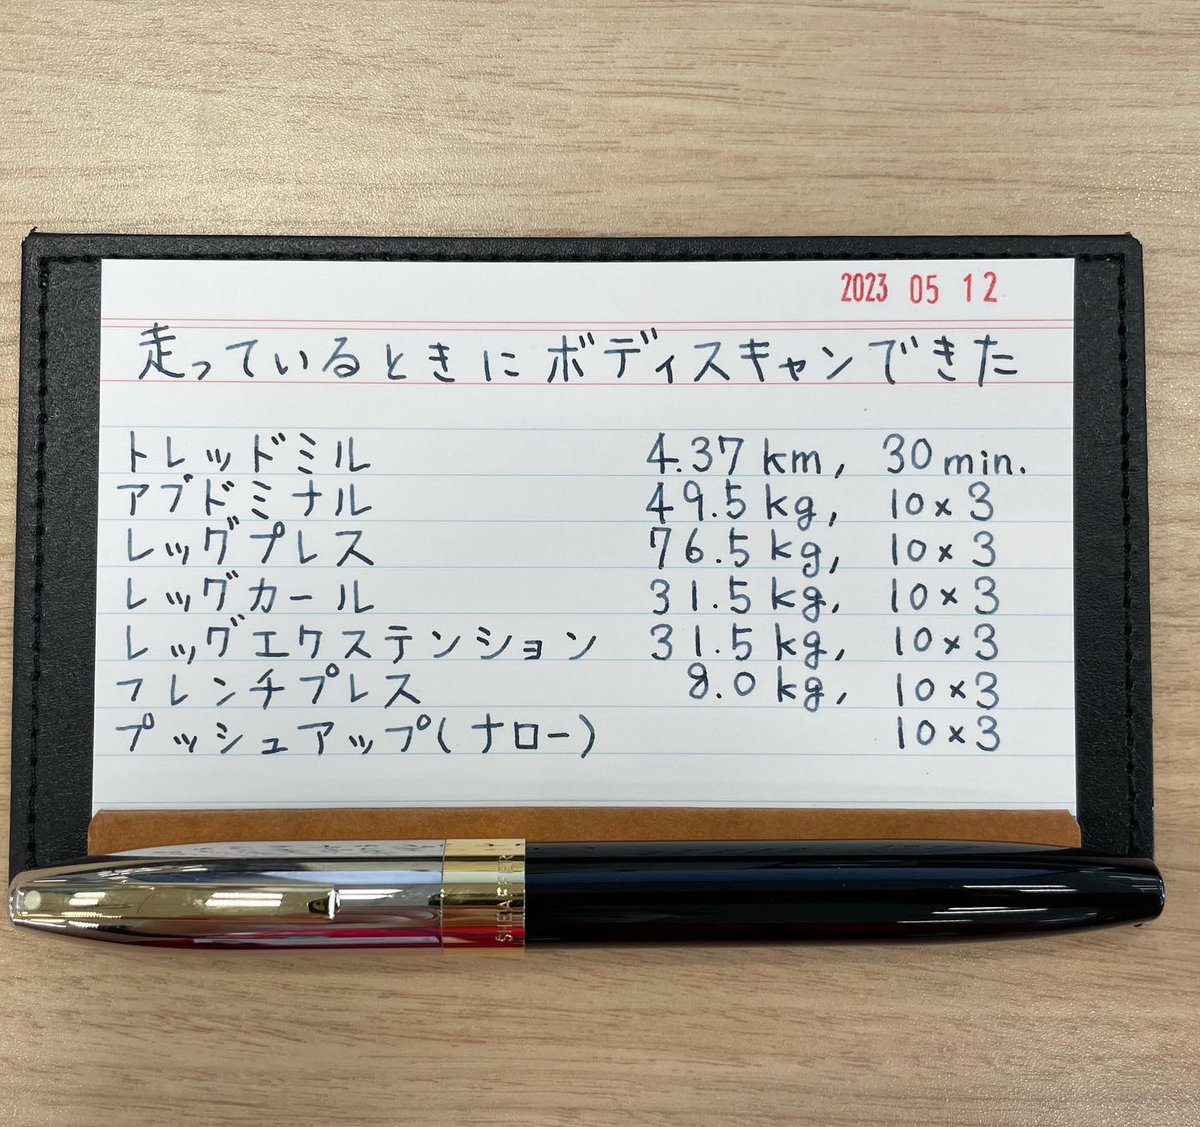 2023 05 12
走っているときにボディスキャンできた
トレッドミル 4.37 km, 30 min.
アブドミナル 49.5 kg, 10×3
レッグプレス 76.5 kg, 10×3
レッグカール 31.5 kg, 10×3
レッグエクステンション 31.5 kg, 10×3
フレンチプレス 8.0 kg, 10×3
プッシュアップ(ナロー) 10×3
SHEAFFER